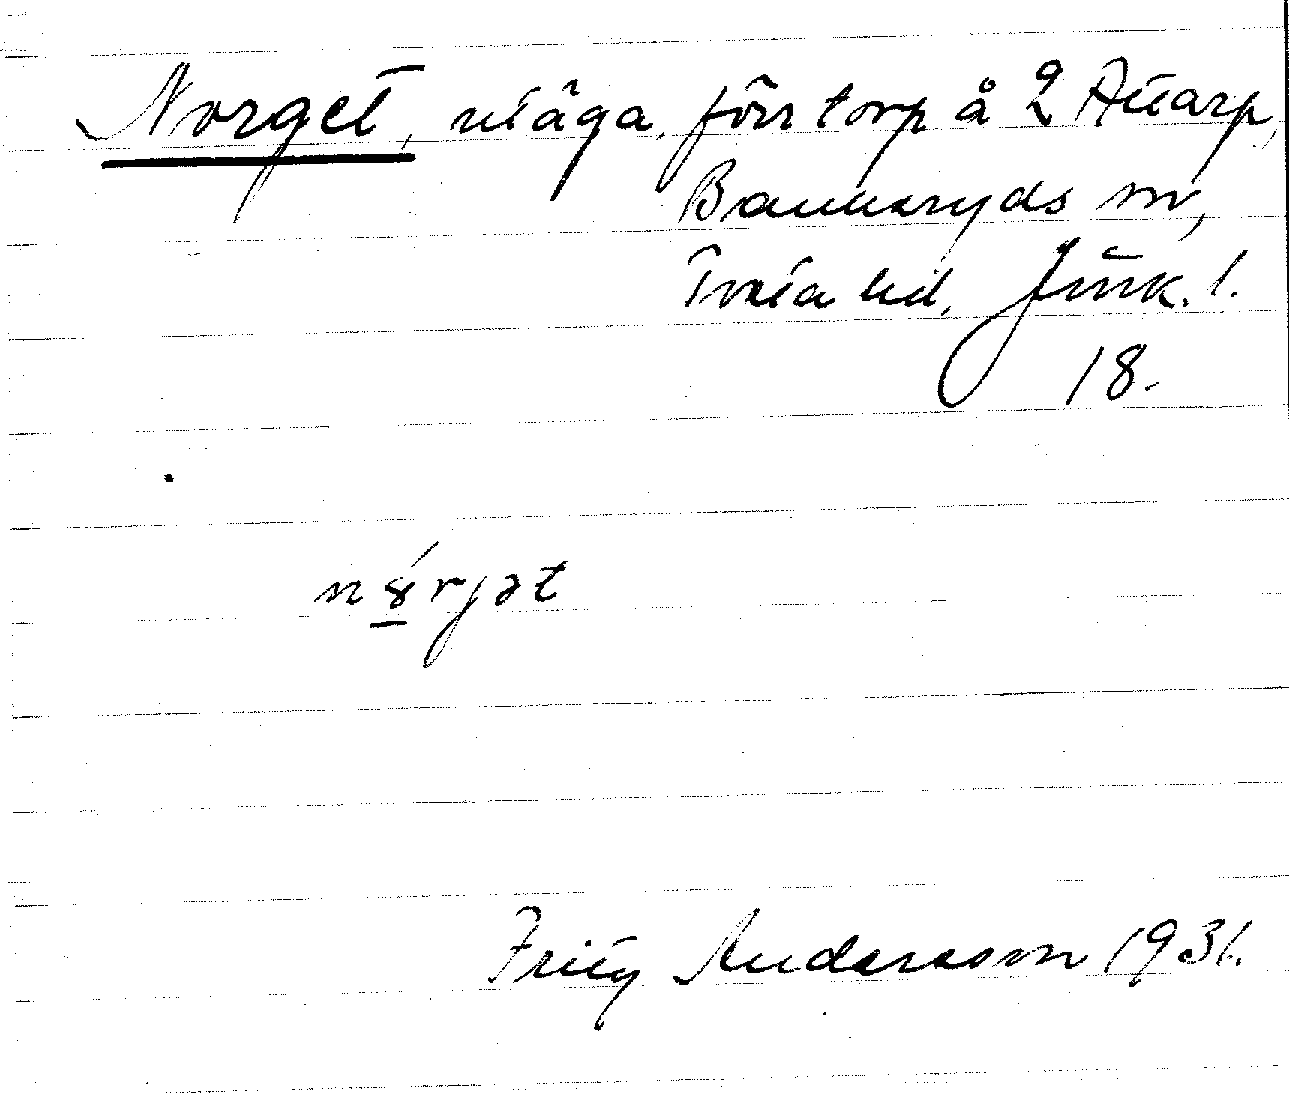 Norget, utäga, förr torp å 2 Attarp,
Bankeryds sn,
Tveta hd, Jönk. l.
18.
nȣ́rjət
Fritz Andersson 1931.